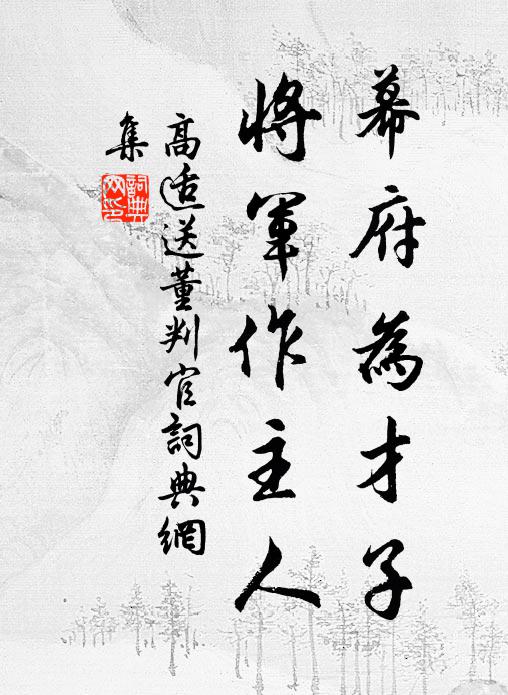 幕府為才子
將軍作主人
高適送董判官詞典網
集
詞典
网印